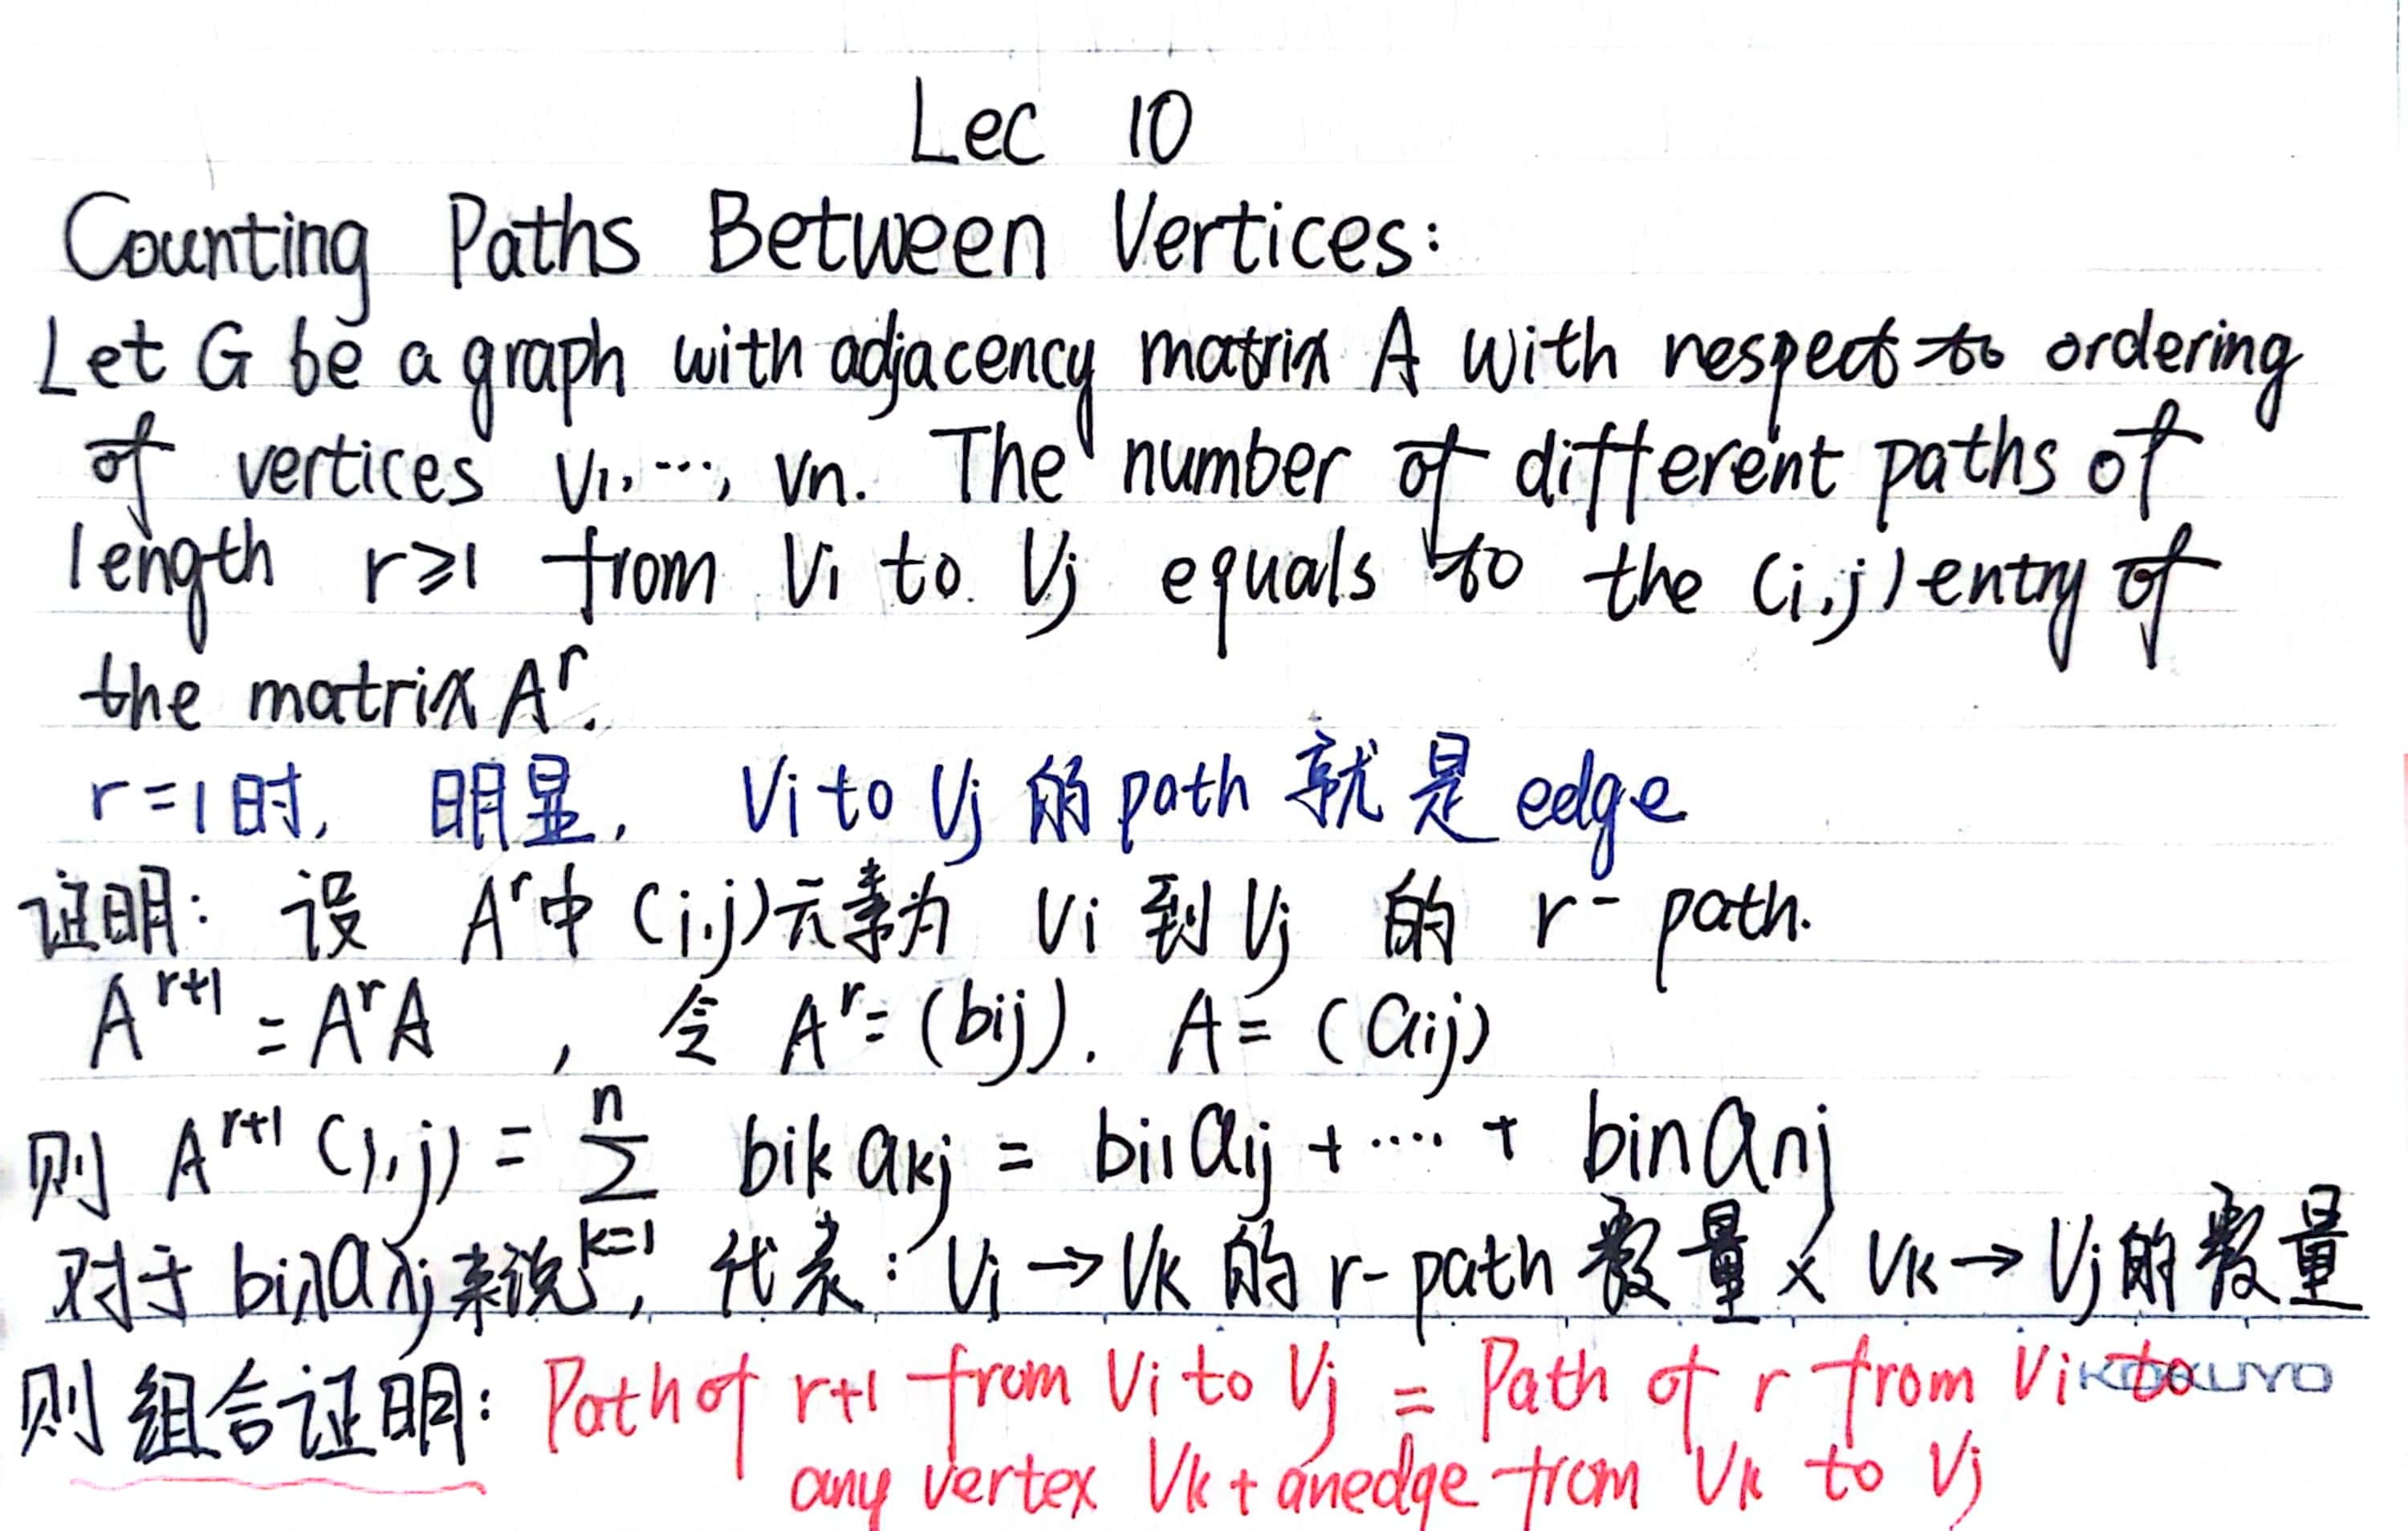 Lec 10
Counting Paths Between Vertices:
Let G be a graph with adjacency matrix A with respect to ordering
of vertices V1, ..., Vn. The number of different paths of
length r≥1 from Vi to Vj equals to the (i,j) entry of
the matrix A^r.
r=1时, 明显, Vi to Vj 的 path 就是 edge
证明: 设 A^r中 (i,j)元素为 Vi 到 Vj 的 r- path.
A^{r+1} = A^r A , 令 A^r = (bij). A = (aij)
则 A^{r+1} (i,j) = ∑_{k=1}^{n} bik akj = bi1 a1j + .... + bin anj
对于 来说, 代表: Vi → Vk 的 r-path 数量 × Vk → Vj 的 数量
则 组合证明: Path of r+1 from Vi to Vj = Path of r from Vi to
any vertex Vk + an edge from Vk to Vj
KOKUYO